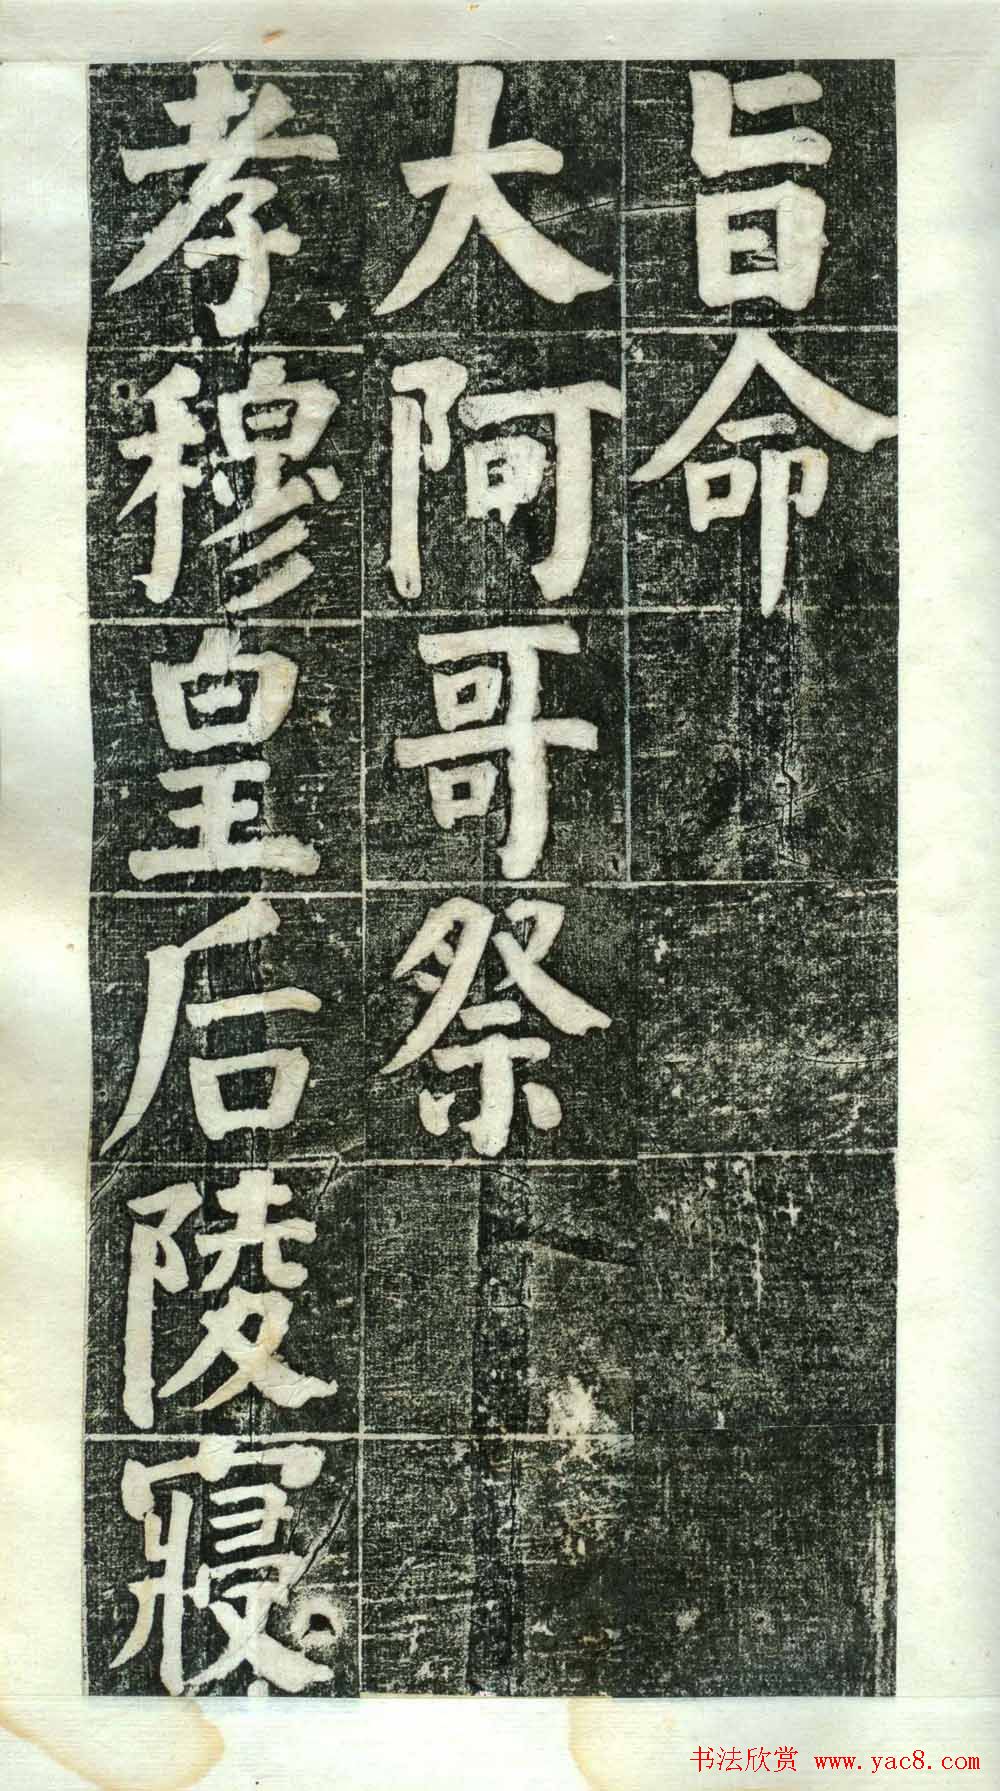 旨命
大阿哥祭
孝穆皇后陵寢
书法欣赏 www.yac8.com